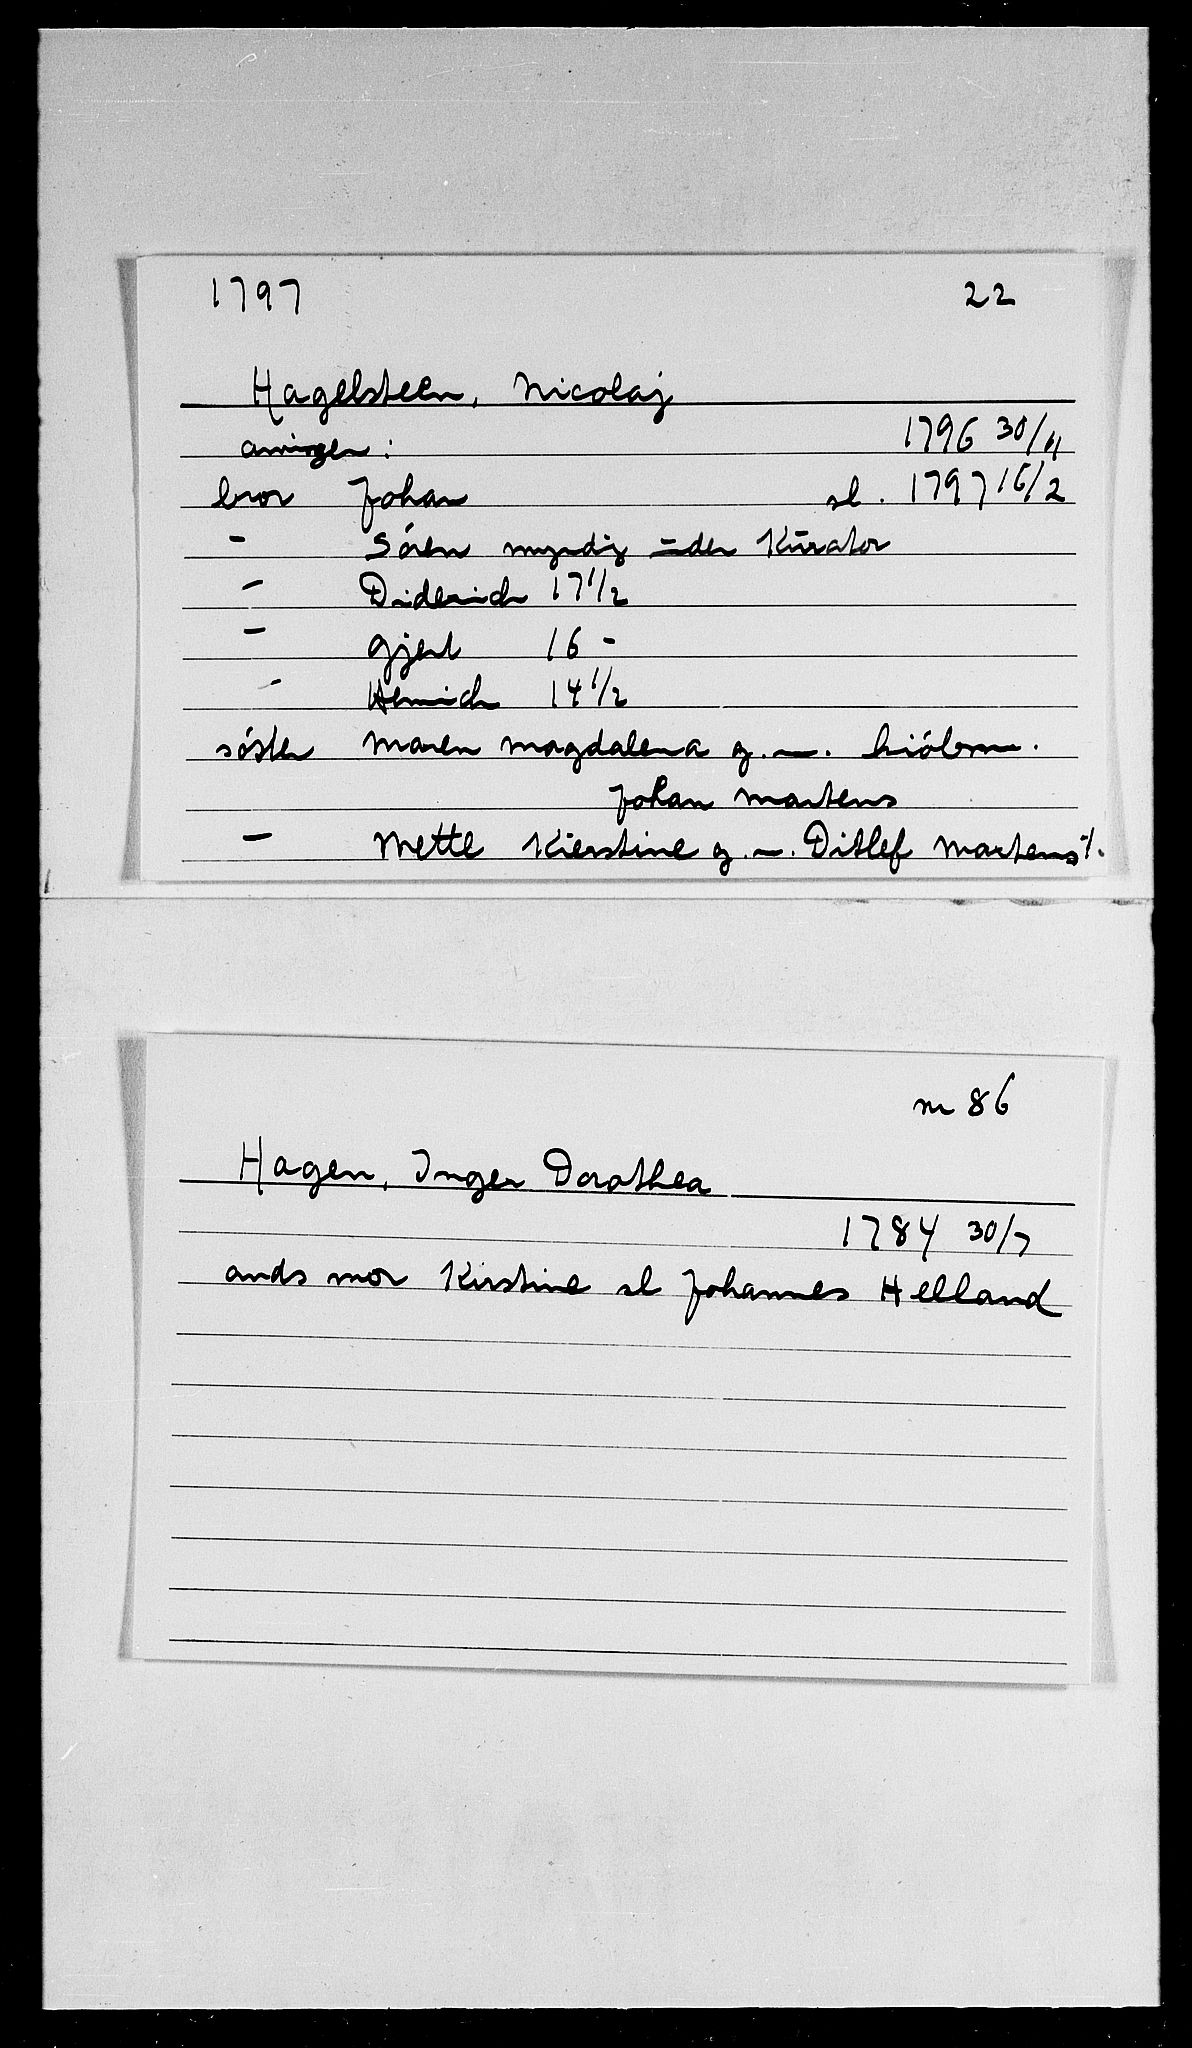 1797 22
Hagelsteen, Nicolaj
arvinger: 1796 30/11
bror Johan sl. 1797 16/2
- Sören myndig under Kurator
- Diderich 17 1/2
- Gjert 16 -
- Henrich 14 1/2
söster Maren Magdalena g.m. kiöbm.
Johan Martens
- Mette Kierstine g.m. Ditlef Martens ./.
nr 86
Hagen, Inger Dorothea
1784 30/7
ands mor Kirstine sl Johannes Helland